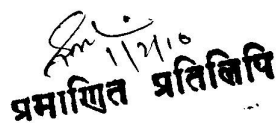 1/2/10
प्रमाणित प्रतिलिपि